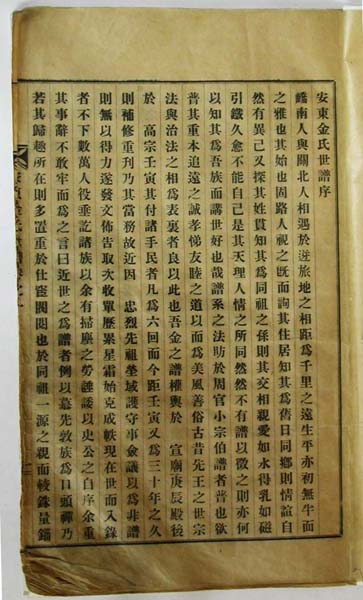 安東金氏世譜序
嶠南人與關北人相遇於逆旅地之相距爲千里之遠生平亦初無半面
之雅也其始也固路人視之旣而詢其住居知其爲舊日同鄕則情誼自
然有異己又探其姓貫知其爲同祖之孫則其交相親愛如水得乳如磁
引鐵久愈不能自己是其天理人情之所同然然不有譜以徵之則亦何
以知其爲吾族而講世好也哉譜系之法昉於周官小宗伯譜者普也欲
普其重本追遠之誠孝悌友睦之道以而爲美風善俗古昔先王之世宗
法與治法之相爲表裏者良以此也吾金之譜權輿於 宣廟庚辰殿後
於 高宗壬寅其付諸手民者凡爲六回而今距壬寅又爲三十年之久
則補修重刊乃其當務故近因 忠烈先祖塋域護守事僉議以爲非譜
則無以得力於是發文告取次收單歷累星霜始克成帙現在世而入錄
者不下數萬人役垂訖諸族以余有掃塵之勞誶諉以史公之自序余重
其事辭不敢牢而爲之言曰近世之爲譜者例以慕先敦族爲口頭禪乃
若其歸趣所在則多置重於仕宦閥閱也於同祖一源之親而較銖量錙